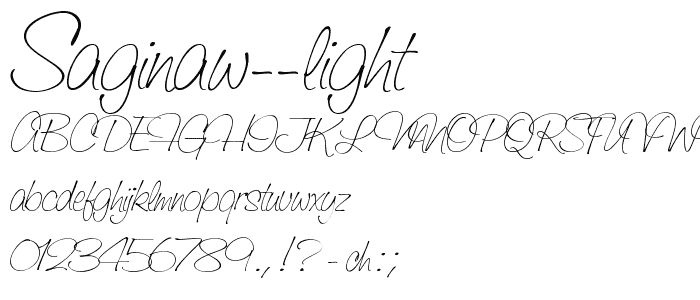 Saginaw--light
ABCDEFGHIJKLMNOPQRSTUVW
abcdefghijklmnopqrstuvwxyz
0123456789.,!?-ch:;